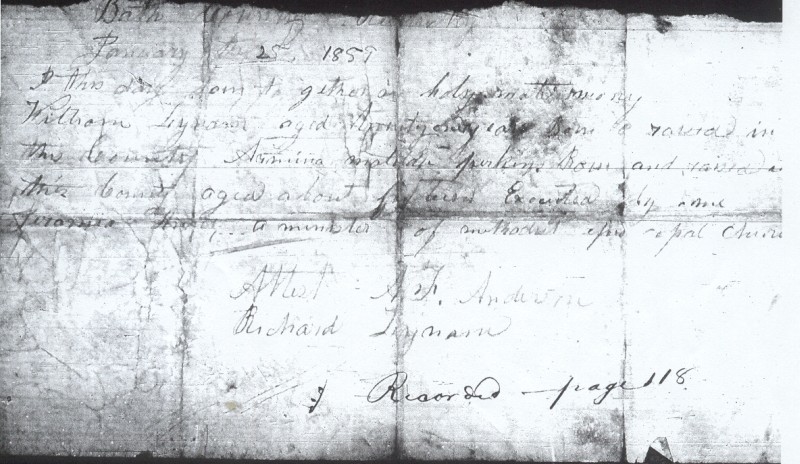 Bath County Kentucky
January the 25, 1859
I this day Join to gether in holy matrimony
William Lynam aged twenty one years Born & raised in
this County Matilda Perkins Born and raised in
this County aged about fifteen Executed by me
a minister of methodist epis copal Church
Attest A. F. Anderson
Richard Lynam
Recorded - page 118